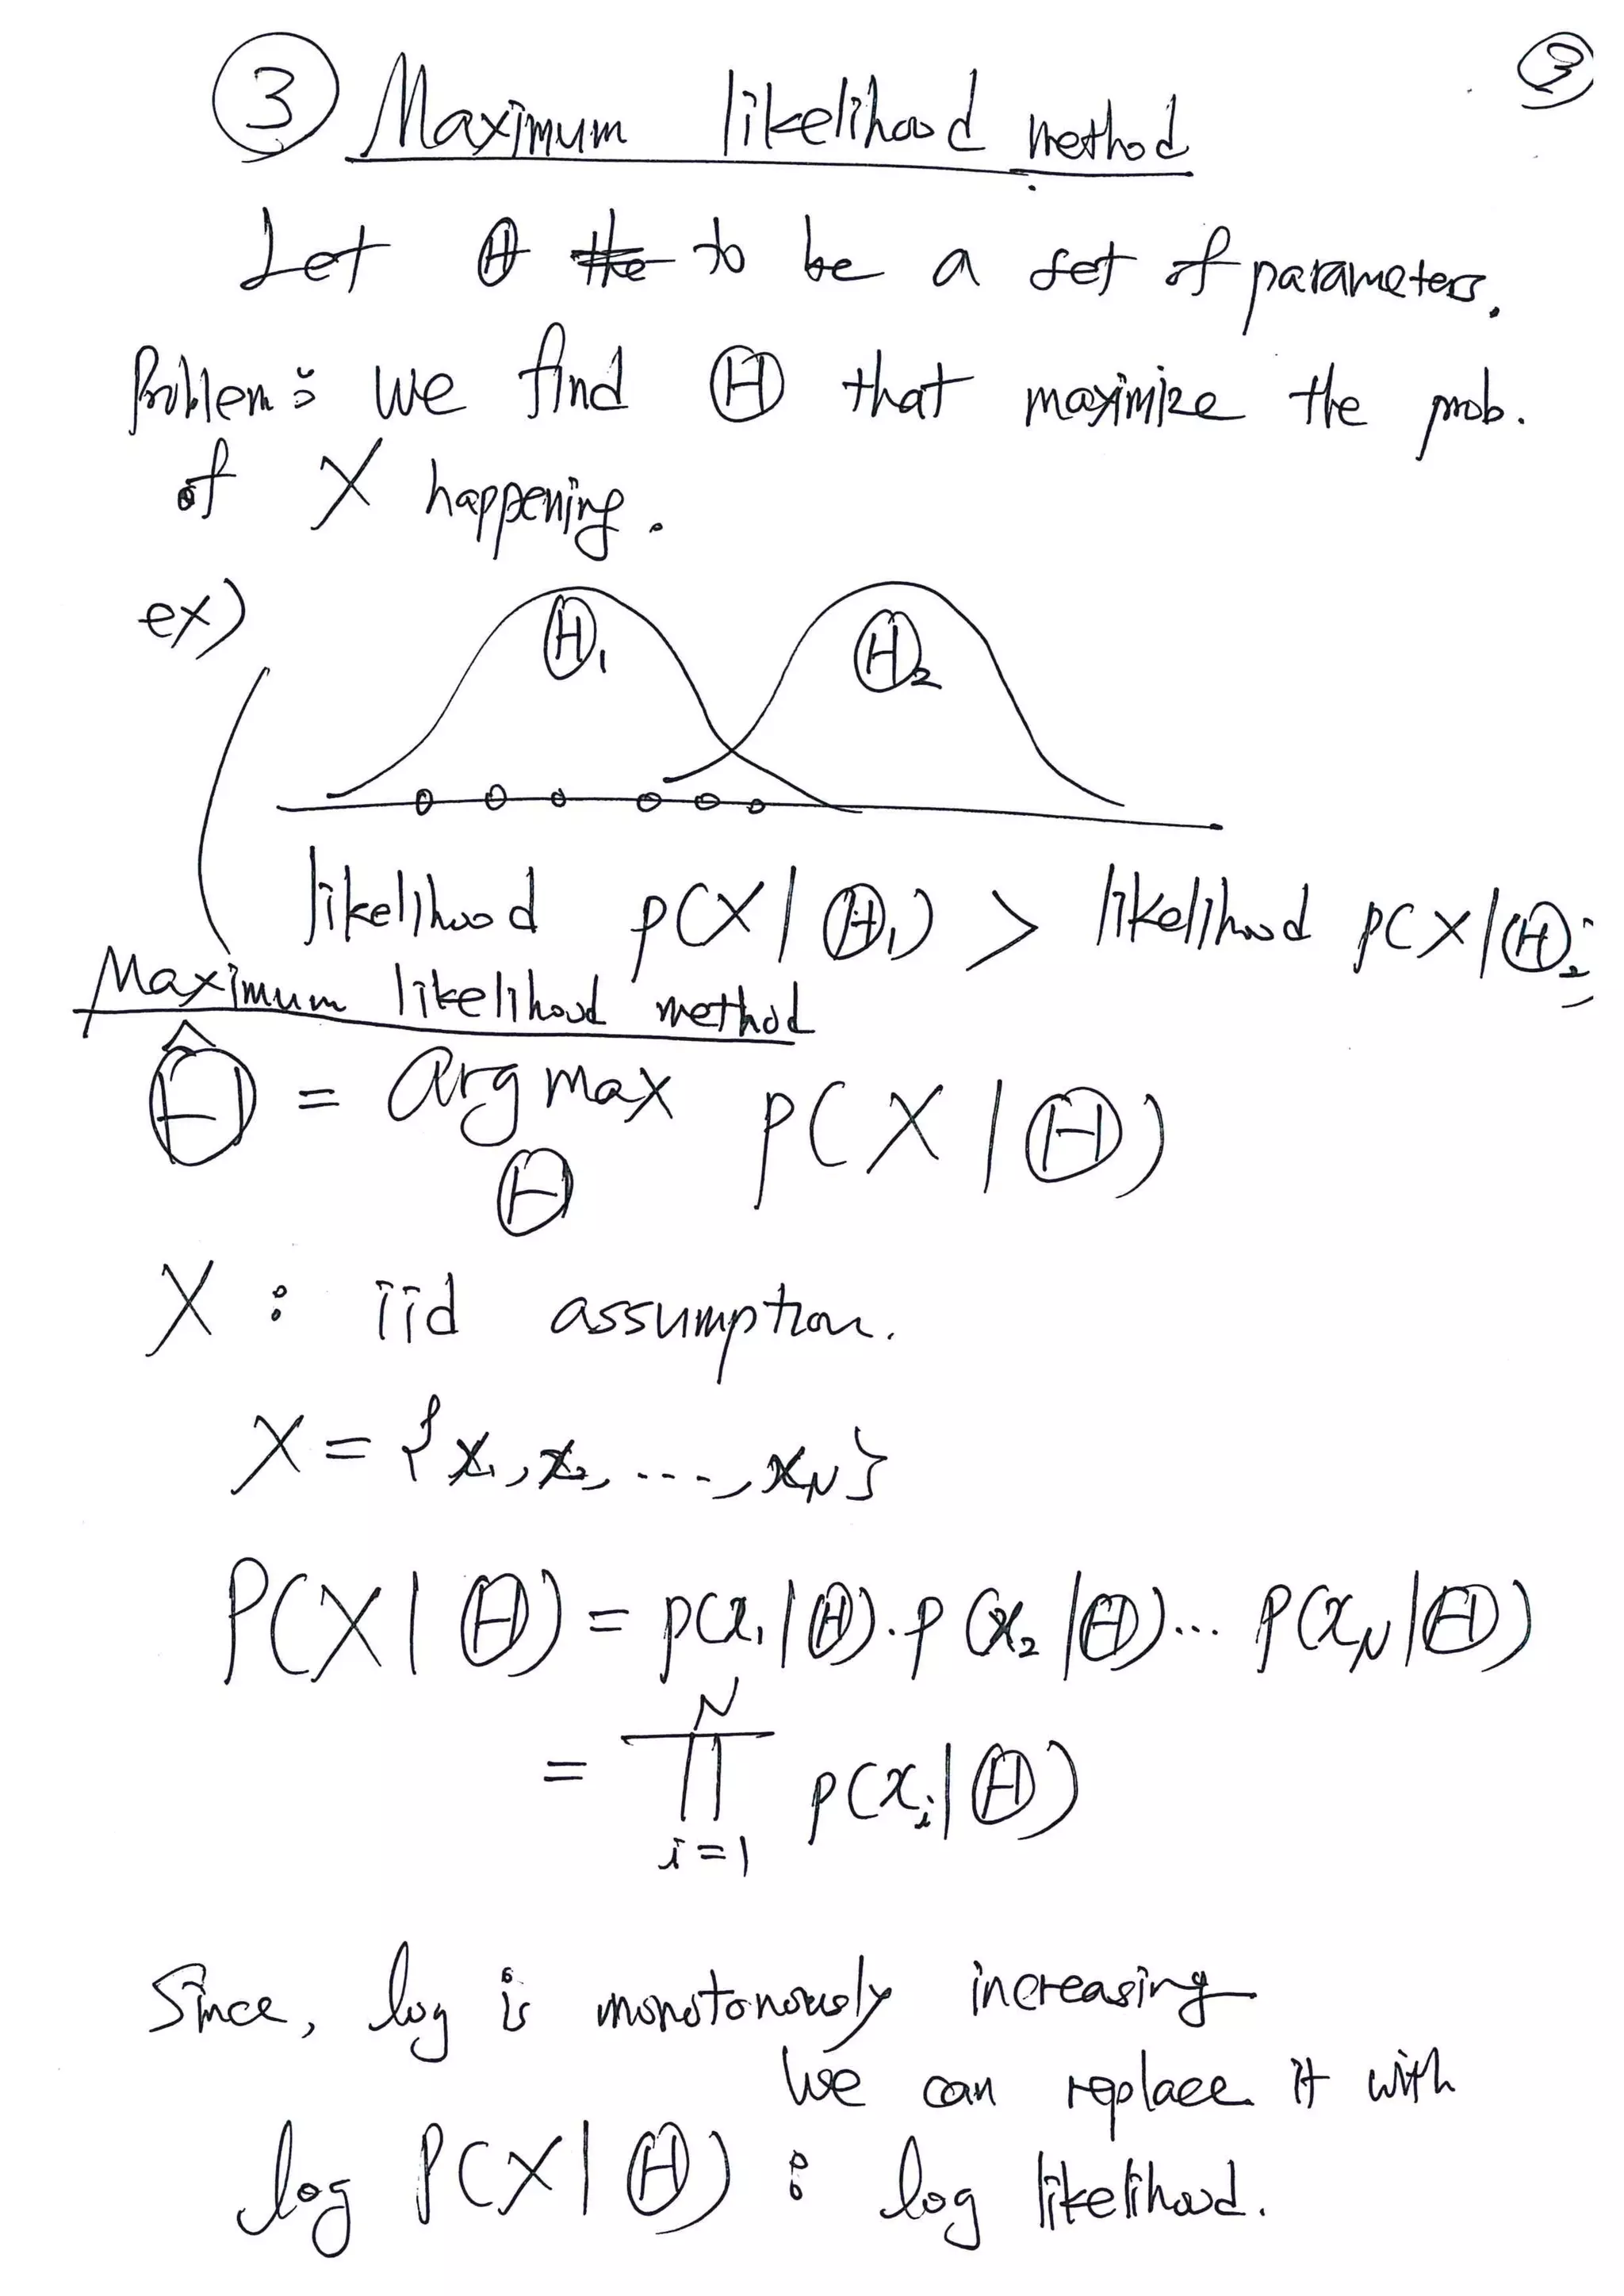 ③ Maximum likelihood method
⑨
Let Θ the to be a set of parameters.
Problem: we find Θ that maximize the prob.
of X happening.
ex)
Θ₁ Θ₂
likelihood p(X|Θ₁) > likelihood p(X|Θ₂)
Maximum likelihood method
Θ̂ = argmax p(X|Θ)
Θ
X : iid assumption.
X = {x₁, x₂, ...., x_N}
P(X|Θ) = p(x₁|Θ)·p(x₂|Θ)... p(x_N|Θ)
N
= ∏ p(xᵢ|Θ)
i=1
Since, log is monotonously increasing
we can replace it with
log P(X|Θ) : log likelihood.